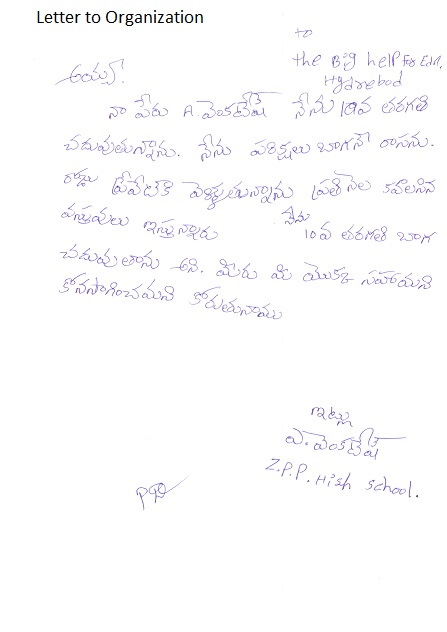 Letter to Organization
to
the Big help For Edn,
Hyderebad
అయ్యా!
నా పేరు A. వెంకటేష్ నేను 10వ తరగతి
చదువుతున్నాను. నేను పరిక్షలు బాగనే రాసను.
రోజు ప్రేవేటికి వెళ్ళుతున్నాను ప్రతి నెల కావాలసిన
వస్తువులు ఇస్తున్నారు నేను
10వ తరగతి బాగ
చదువుతాను అని. మీరు మి యొక్క సహాయని
కోనసాగించమని కోరుతునాము
ఇట్లు
ఎ. వెంకటేష్
Z.P.P. High school.